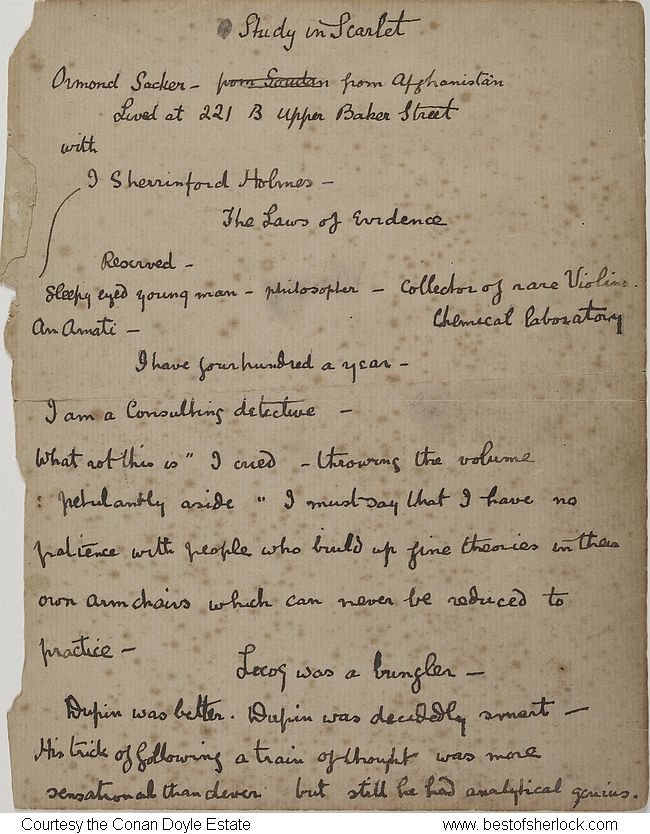 Study in Scarlet
Ormond Sacker – from Soudan from Afghanistan
Lived at 221 B Upper Baker Street
with
I Sherrinford Holmes –
The Laws of Evidence
Reserved –
Sleepy eyed young man – philosopher – Collector of rare Violins.
An Amati –
Chemical laboratory
I have four hundred a year –
I am a Consulting detective –
What rot this is" I cried – throwing the volume
: petulantly aside " I must say that I have no
patience with people who build up fine theories in their
own armchairs which can never be reduced to
practice –
Lecoq was a bungler –
Dupin was better. Dupin was decidedly smart –
His trick of following a train of thought was more
sensational than clever but still he had analytical genius.
Courtesy the Conan Doyle Estate
www.bestofsherlock.com